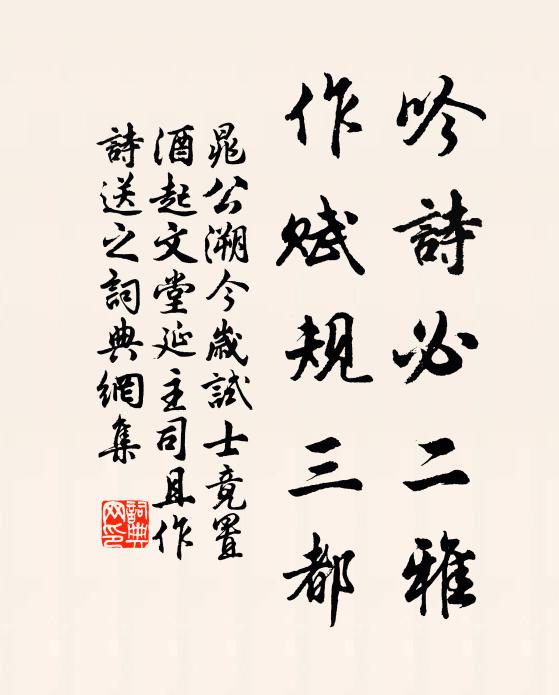 吟詩必二雅
作賦規三都
晁公溯今歲試士竟置
酒起文堂延主司且作
詩送之詞典網集
詞典网印